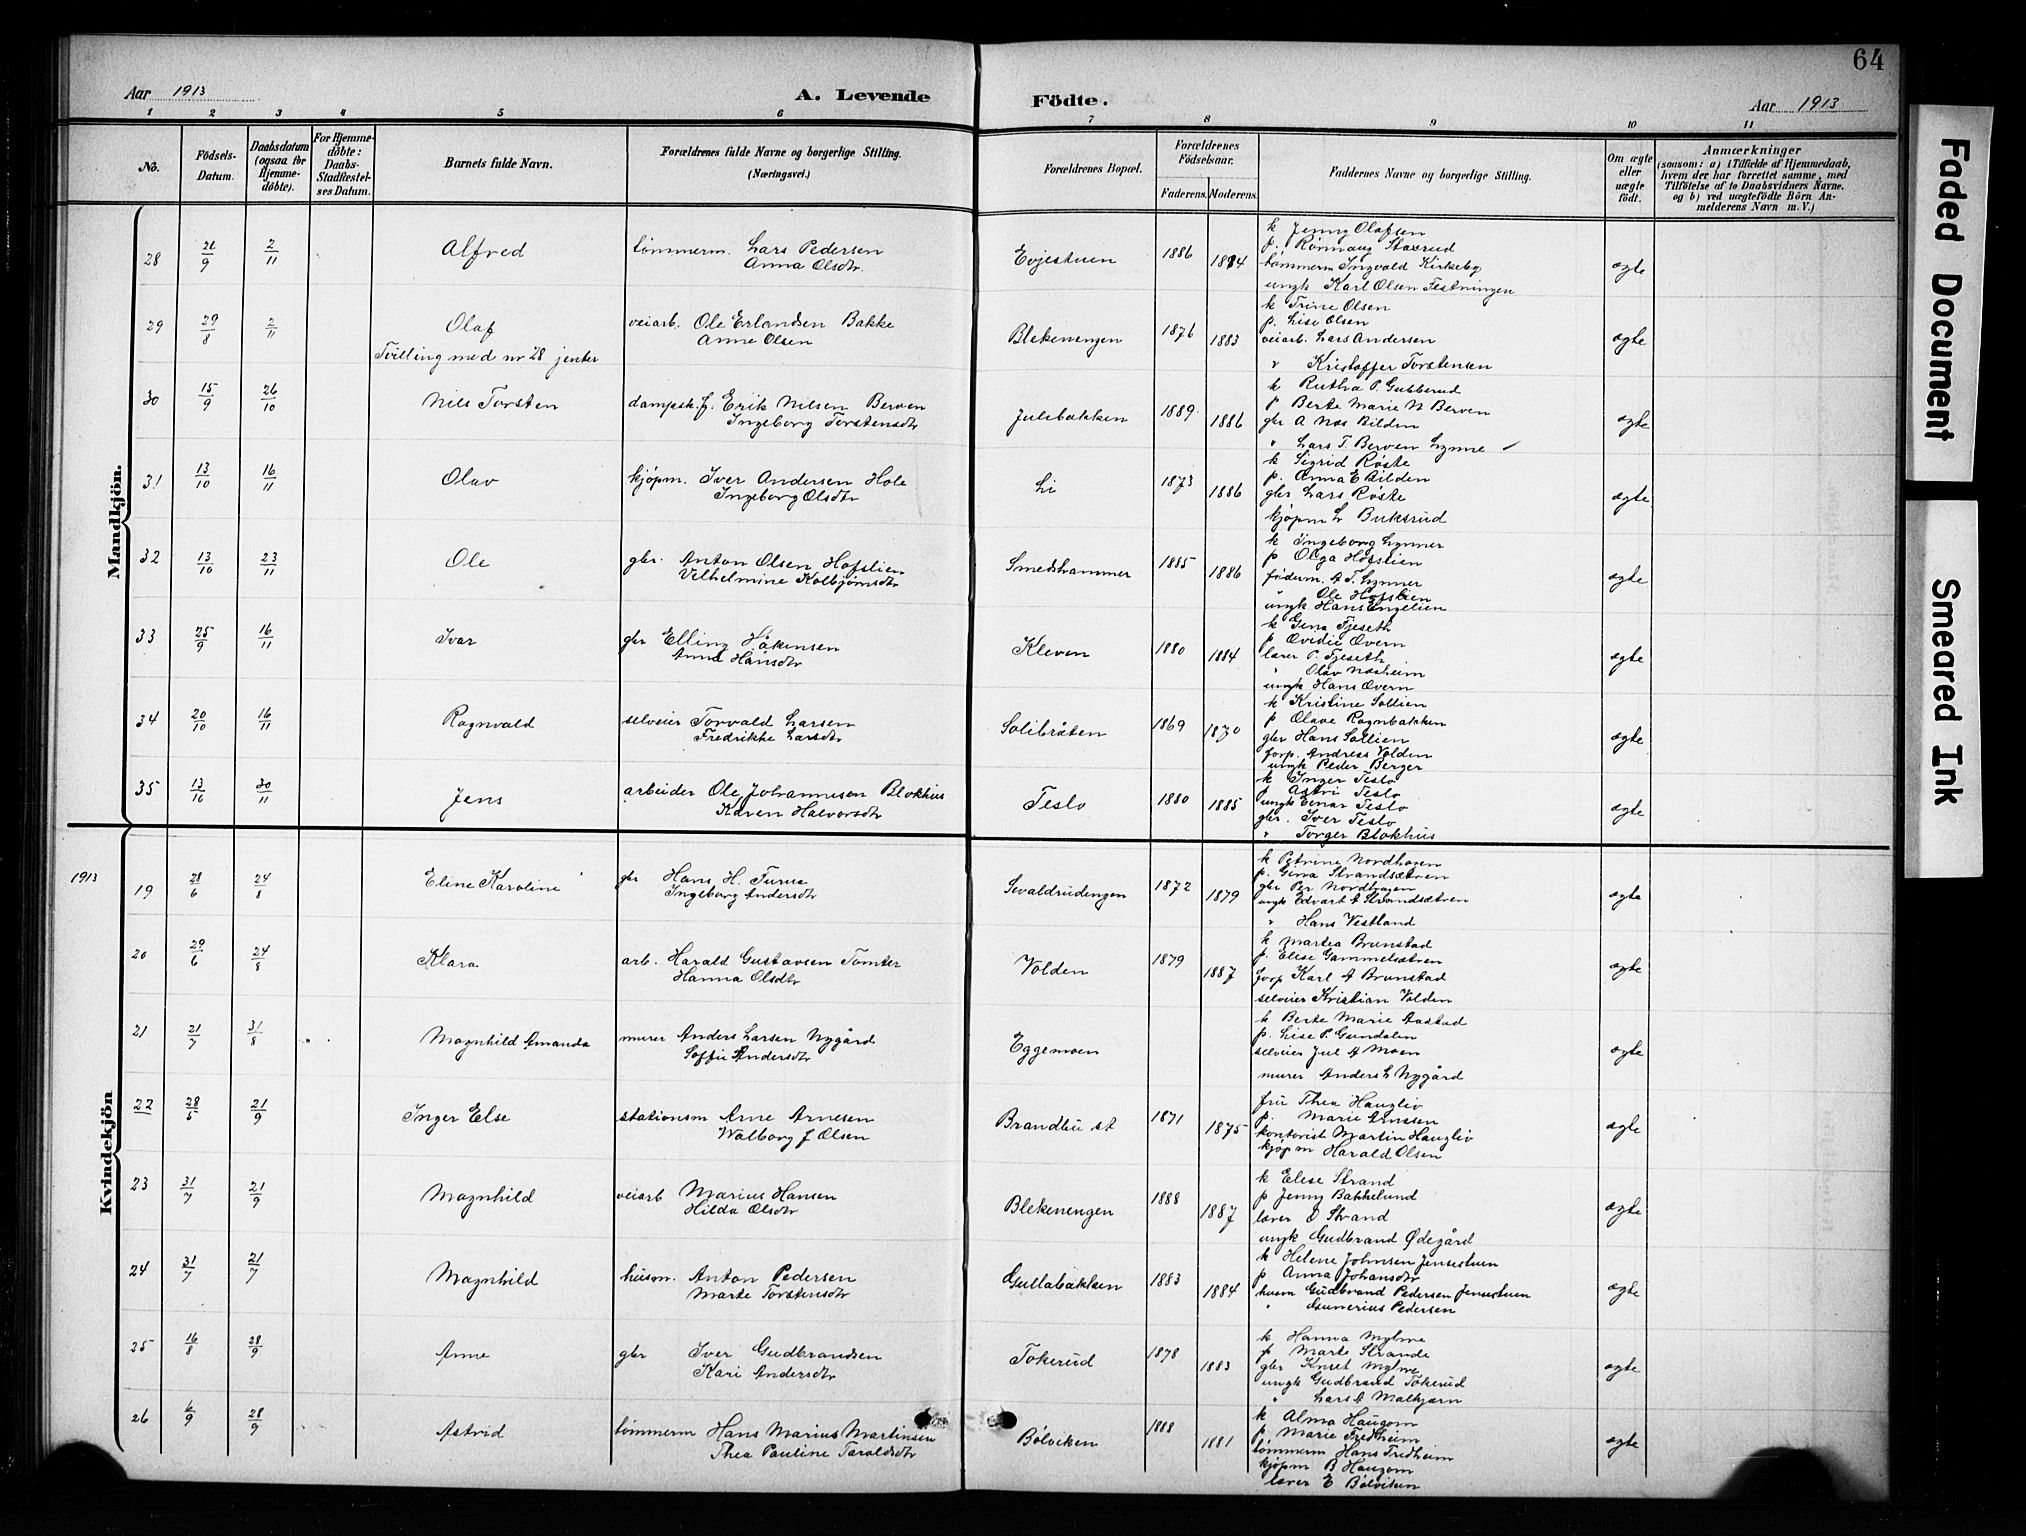 64
Aar 1913 A. Levende Födte. Aar 1913
1 2 3 4 5 6 7 8 9 10 11
No. Födsels-Datum. Daabsdatum (ogsaa for Hjemmedöbte). For Hjemmedöbte: Daabs-Stadfestelses Datum. Barnets fulde Navn. Forældrenes fulde Navne og borgerlige Stilling. (Næringsvei.) Forældrenes Bopæl. Forældrenes Födselsaar. Faderens. Moderens. Faddernes Navne og borgerlige Stilling. Om ægte eller uægte födt. Anmærkninger (saasom: a) i Tilfælde af Hjemmedaab, hvem der har forrettet samme, med Tilföielse af to Daabsvidners Navne. og b) ved uægtefödte Börn Anmelderens Navn m. V.)
Mandkjön.
28 2/11 Alfred tømmerm. Lars Pedersen Evjestuen 1886 k Jenny Olafsen
Anna Olsdtr. p. Rønnaug Staxrud
tømmerm Ingvald Kirkeby ægte
ungk Karl Olsen Festningen
29 29/8 2/11 Olaf veiarb. Ole Erlandsen Bakke Blekenengen 1876 1883 k Trine Olsen
Tvilling med nr 28 jenter Anne Olsen p. Lise Olsen
veiarb. Lars Andersen ægte
" Kristoffer Torstensen
30 15/9 26/10 Nils Torsten dampsk.f. Erik Nilsen Berven Julebakken 1889 1886 k Rutha P. Gubberud
Ingeborg Torstensdtr p Berte Marie N Berven
gbr A Næs Bilden ægte
" Lars T. Berven Lynne
31 13/10 16/11 Olav kjøpm. Iver Andersen Hole Li 1873 1886 k Sigrid Røste
Ingeborg Olsdtr p. Anna E Bilden
gbr Lars Røste ægte
kjøpm L Buksrud
32 13/10 23/11 Ole gbr. Anton Olsen Hofslien Smedshammer 1885 1886 k Ingeborg Lynner
Vilhelmine Kolbjørnsdtr p Olga Hofslien
føderm. A T. Lynner ægte
" Ole Hofslien
ungk Hans Engelien
33 25/9 16/11 Ivar gbr Elling Håkensen Kleven 1880 1884 k Gina Fjeseth
Anna Hansdtr p Ovidie Øvern
lærer P. Fjeseth ægte
" Olav Næsheim
ungk Hans Øvern
34 20/10 16/11 Ragnvald selveier Torvald Larsen Solibråten 1869 1870 k Kristine Sollien
Fredrikke Larsdtr p Olave Rognbakken
gbr Hans Sollien ægte
forp. Andreas Volden
ungk Peder Berger
35 30/11 Jens arbeider Ole Johannesen Blokhus Teslo 1880 1885 k Inger Teslo
Karen Halvorsdtr p Astri Teslo
ungk Einar Teslo ægte
gbr. Iver Teslo
" Torger Blokhus
Kvindekjön
1913 19 28/6 24/8 Eline Karoline gbr Hans H. Furua Sevaldrudengen 1872 1879 k Petrine Nordhagen
Ingeborg Andersdtr p. Gina Strandsætren
gbr Per Nordhagen ægte
ungk Edvart A Strandsætren
" Hans Vestland
20 29/6 24/8 Klara arb. Harald Gustavsen Tomter Volden 1879 1887 k Martea Brunstad
Hanna Olsdtr p. Elise Gammelsætren
forp Karl A Brunstad ægte
selveier Kristian Volden
21 21/7 31/8 Magnhild Amanda murer Anders Larsen Nygård Eggemoen k Berte Marie Aastad
Soffie Andersdtr p. Lise P. Gundalen
selveier Jul A Moen ægte
murer Anders L Nygård
22 28/5 21/9 Inger Else stationsm Arne Arnesen Brandbu st 1871 1875 fru Thea Hauglie
Walborg J Olsen p. Marie Arnesen
kontorist Martin Hauglie ægte
kjøpm Harald Olsen
23 31/7 21/9 Magnhild veiarb Marius Hansen Blekenengen 1888 1887 k Elise Strand
Hilda Olsdtr p Jenny Bakkelund
lærer O Strand ægte
ungk Gudbrand Ødegård
24 31/7 21/7 Magnhild husm. Anton Pedersen Gullabakken 1883 1884 k Helene Johnsen Jensestuen
Marte Torstensdtr p Anna Johansdtr
husm Gudbrand Pedersen Jensestuen ægte
" Gunerius Pedersen
25 16/8 28/9 Anne gbr Iver Gudbrandsen Tokerud 1878 1883 k Hanna Mylme
Kari Andersdtr p Marte Strande
gbr Knut Mylme ægte
ungk Gudbrand Tokerud
" Lars A Malkjærn
26 6/9 28/9 Astrid tømmerm Hans Marius Martinsen Bølviken 1888 1881 k Alma Haugom
Thea Pauline Taraldsdtr p. Marie Fredheim
tømmerm Hans Fredheim ægte
kjøpm B Haugom
lærer E Bølviken
Faded Document
Smeared Ink